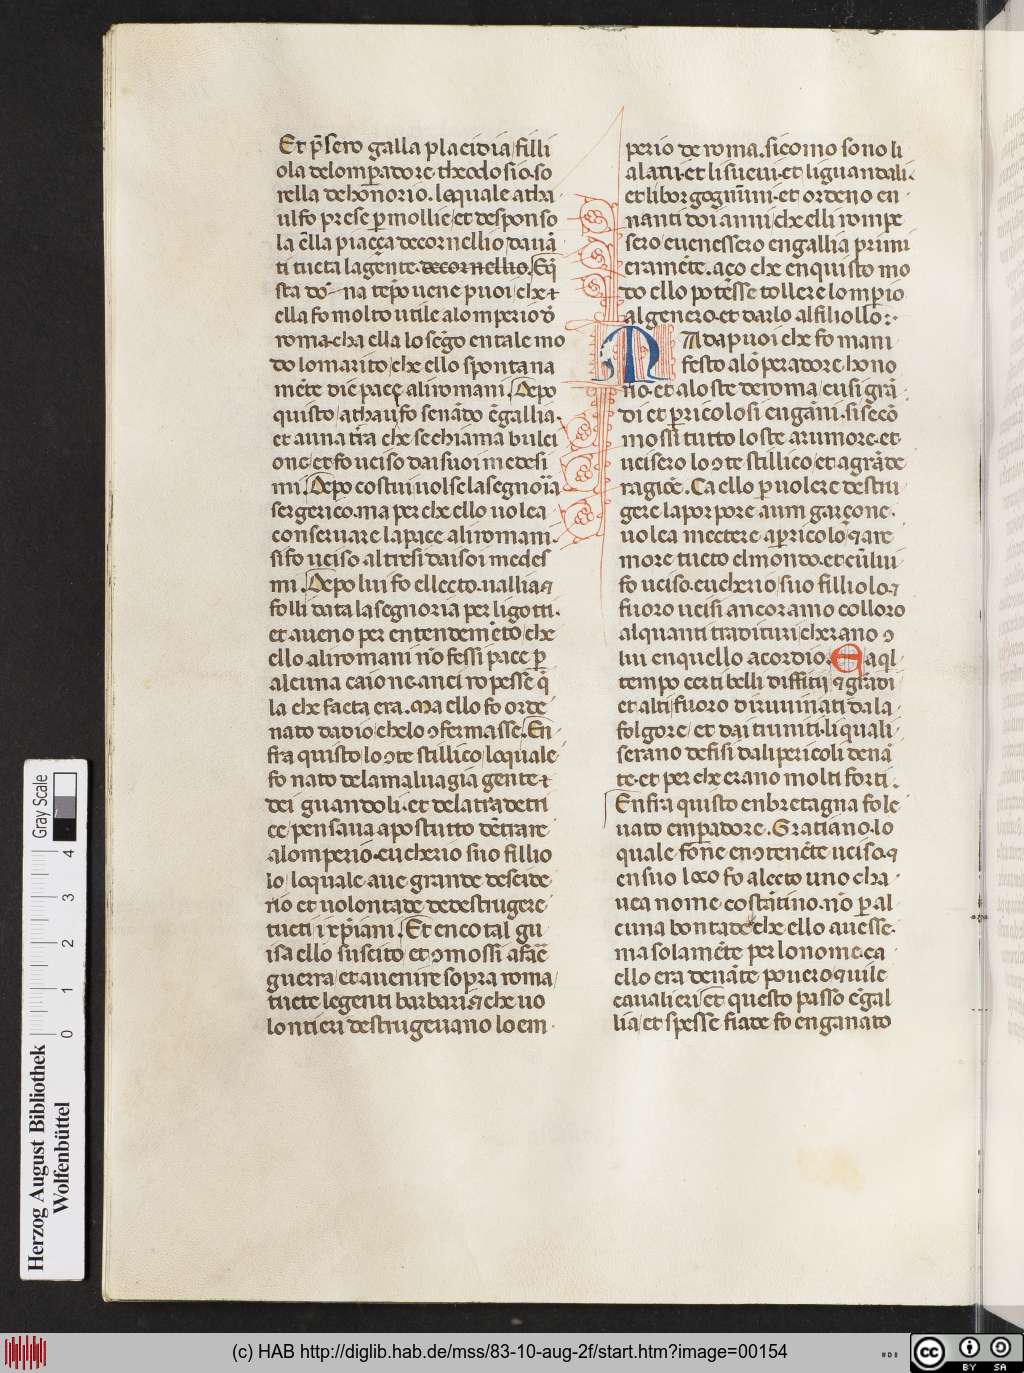 Et p̄sero galla placidia filli
ola delomꝑadore theodosio. so
rella dehonorio. lequale atha
ulfo prese ꝑ mollie et desponso
la ēlla piaçça decornellio dauā
ti tucta la gēnte. decornellio. Eq̄
sta dō na tēpo uene puoi che
ella fo molto utile alomperio d̄
roma. cha ella lo sēgo en tale mo
do lo marito che ello spontana
mēte die paçe ali romani. Depo
quisto athaufo senādo ēgallia.
et auna tr̄a che se chiama bulci
one et fo uciso dai suoi medesi
mi. Depo costui uolse la segnoīa
sergerico. ma per che ello uolea
conseruare la pace ali romani.
si fo uciso altresi dai soi medes
mi. Depo lui fo ellecto. uallia ⁊
folli data la segnoria per li gotti.
et aueno per entendemēto che
ello ali romani nō fessi pace ꝑ
alcuna caione. anci ropesse q̄
la che facta era. Ma ello fo orde
nato dadio che lo ꝯfermasse. En
fra quisto lo ꝯte stillico lequale
fo nato dela maluagia gente
dei guandoli. et dela tr̄a detri
ce pensaua apostutto dētrare
alomperio. eucherio suo fillio
lo lequale aue grande deside
rio et uolontade dedestrugere
tucti i xp̄iani. Et en cotal gu
isa ello suscito et ꝯmossi afar̄e
guerra et auenire sopra roma
tucte le genti barbari. ⁊ che uo
lontieri destrugeuano lo em
perio de roma. sicomo sono li
alani. et li sueui. et li guandali.
et li borgognūni. et ordeno en
nanti doi anni che elli rompe
sero euenessero en gallia primi
eramēte. aço che en quisto mo
do ello potesse tollere lomꝑio
al genero. et darlo al filiollo:
MAdapuoi che fo mani
festo alōperadore hono
rio. et alo ste de roma cusi grā
di et ꝑricolosi engāni. si secō
mossi tutto lo ste arumore. et
ucisero lo ꝯte stillico et a grāde
ragiōe. Ca ello ꝑ uolere destru
gere la porpore a un garçone.
uolea mectere a pricolo ⁊ are
more tucto el mondo. et cū lui
fo uciso. eucherio suo filliolo ⁊
fuoro ucisi ancoramo colloro
alquanti traditiuri cherano ꝯ
lui en quello acordio. Ea ql
tempo certi belli diffitij ⁊ grādi
et alti fuoro diruinati da la
folgore et dai truniti. li quali
serano defisi dali pericoli denā
te. et per che erano molti forti.
Enfra quisto en bretagna fo le
uato emꝑadore. Gratiano. lo
quale fo ne en ꝯtenēte uciso. ⁊
en suo loco fo alecto uno cha
uea nome costātino. nō ꝑ al
cuna bontade che ello auesse.
ma solamēte per lo nome. ca
ello era denāte pouero quile
caualieri et questo passo ēgal
lia et spesse fiade fo enganato
Gray Scale
0 1 2 3 4
Herzog August Bibliothek
Wolfenbüttel
(c) HAB http://diglib.hab.de/mss/83-10-aug-2f/start.htm?image=00154
cc BY SA